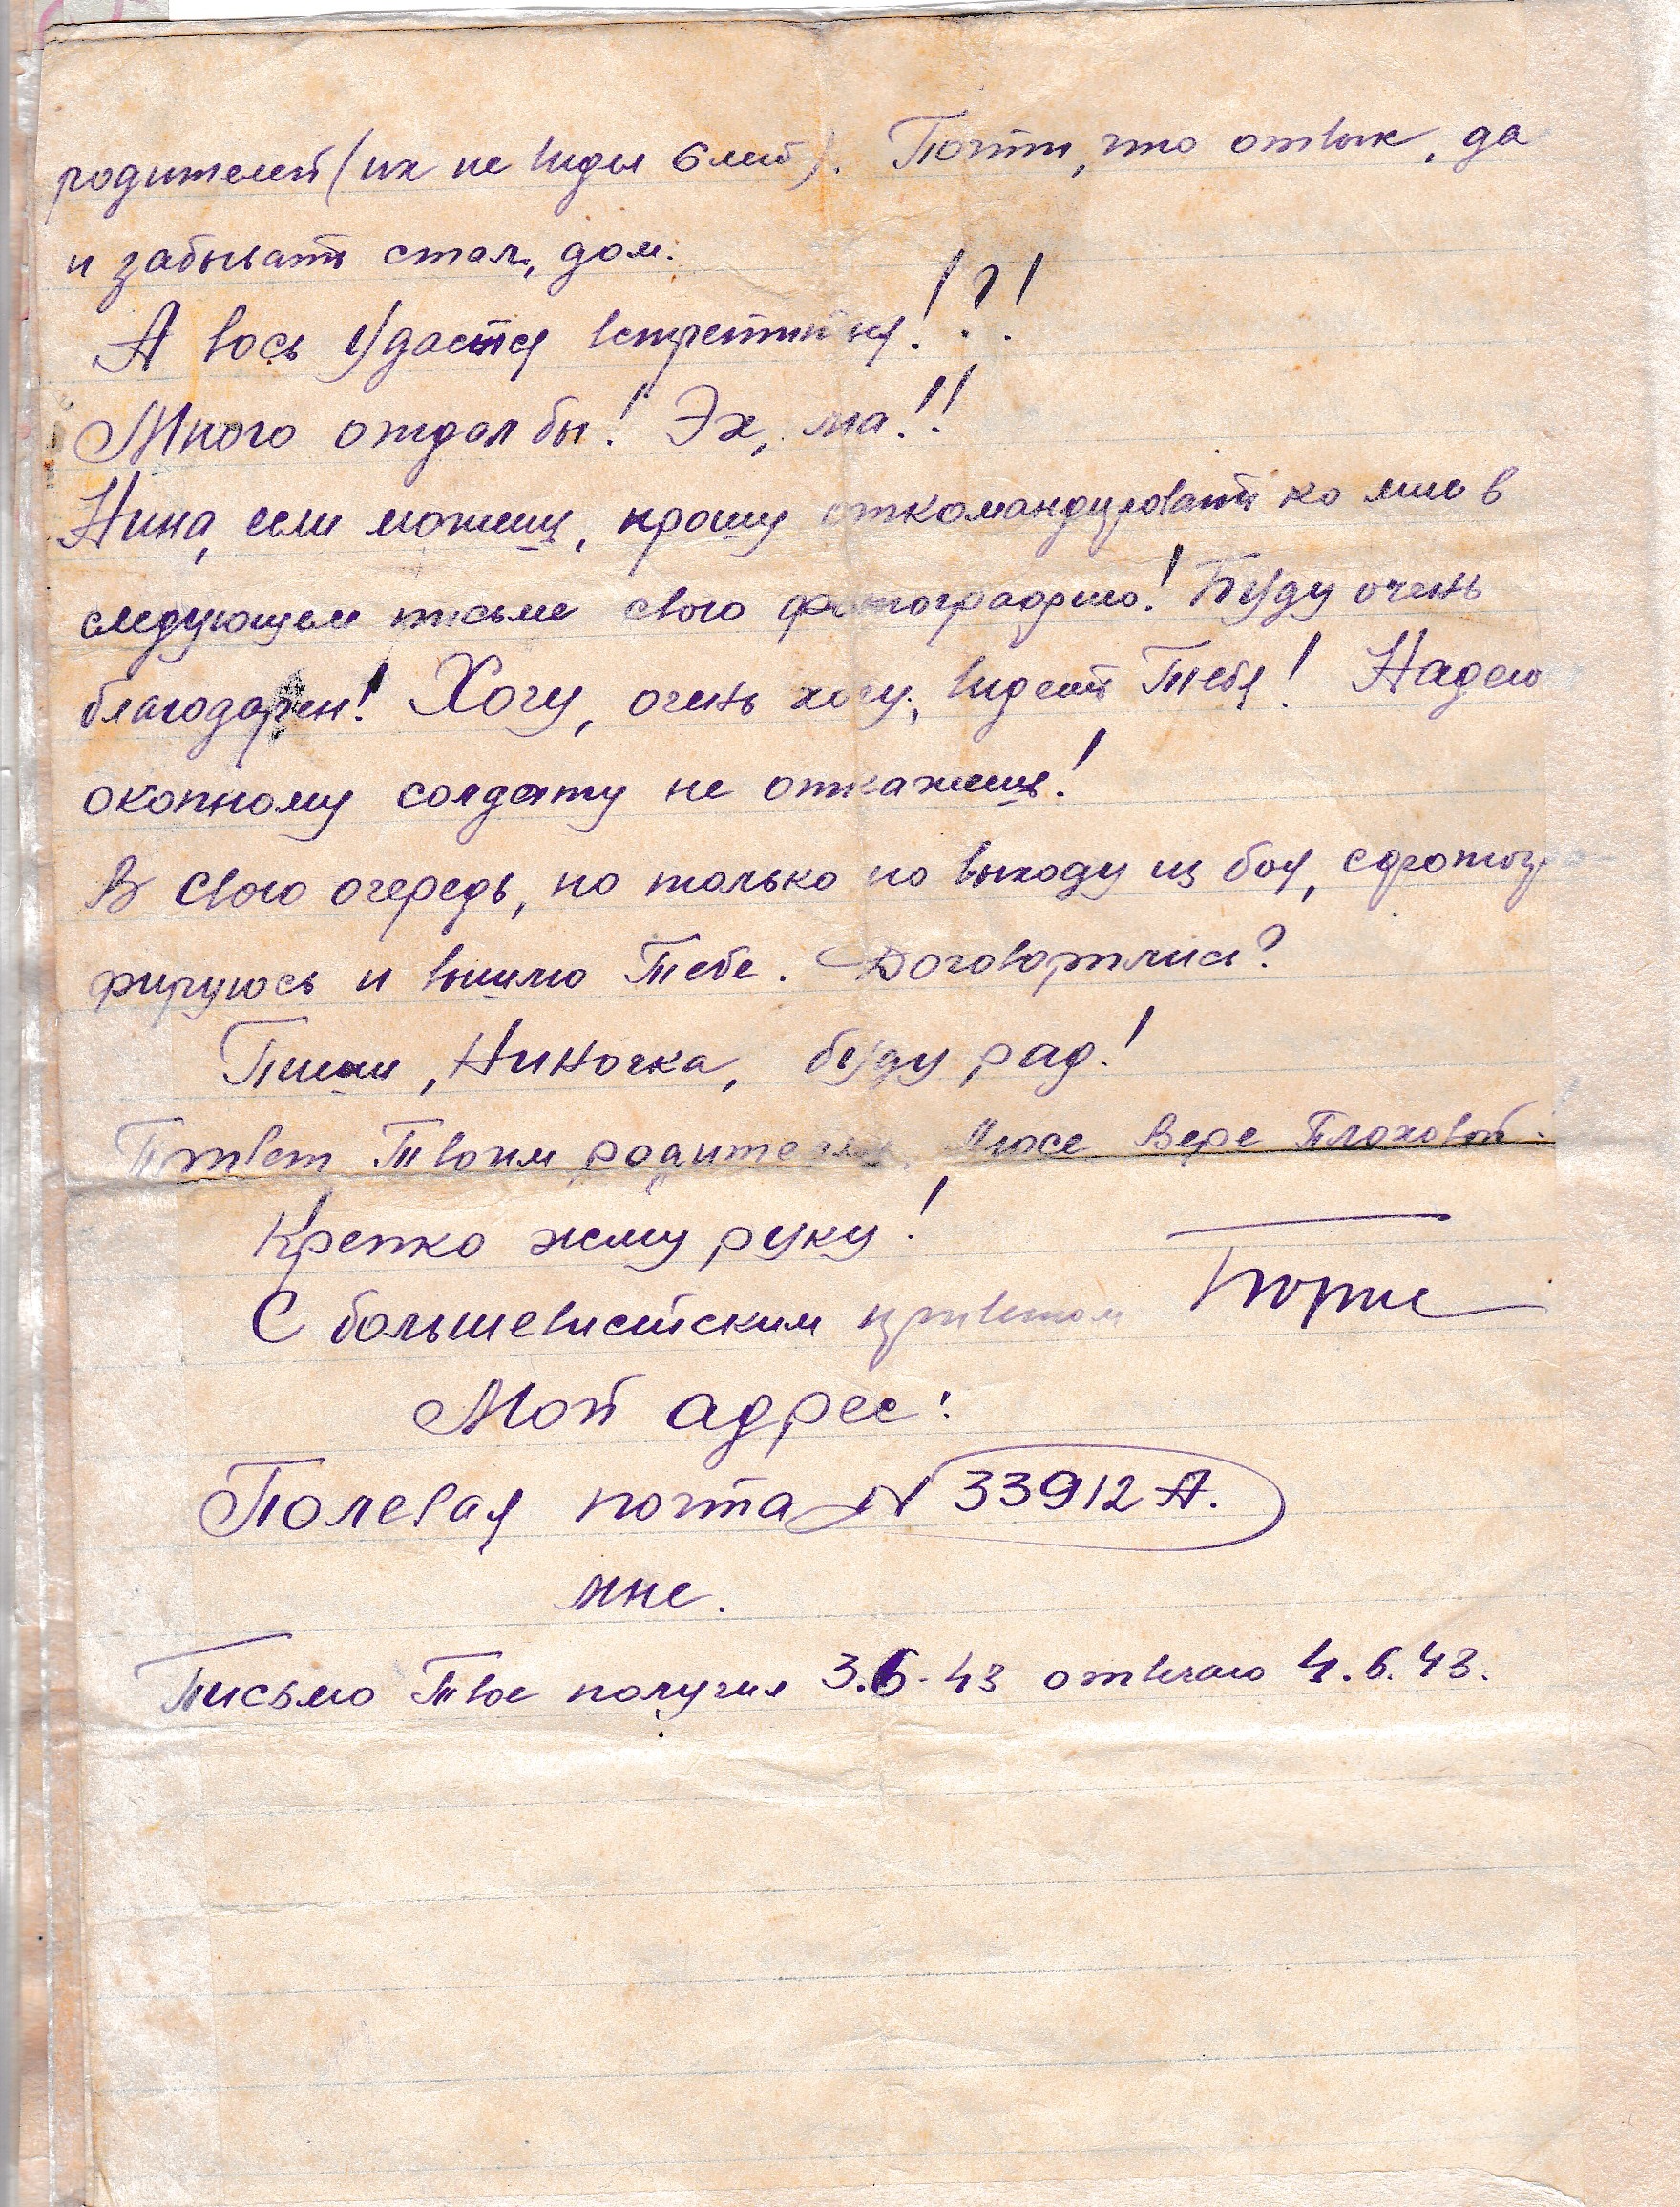 родителей (их не видел 6 лет). Почти, что отвык, да
и забывать стал, дом.
А вось удастся встретиться!?!
Много отдал бы! Эх, ма!!
Нина, если можешь, прошу откомандировать ко мне в
следующем письме свою фотографию! Буду очень
благодарен! Хочу, очень хочу, видеть Тебя! Надею
окопному солдату не откажешь!
В свою очередь, но только по выходу из боя, сфотогра
фируюсь и вышлю Тебе. Договорились?
Пиши, Ниночка, буду рад!
Привет Твоим родителям, Люсе Вере Плоховой.
Крепко жму руку!
С большевистским приветом Борис
Мой адрес:
Полевая почта N 33912 А.
мне.
Письмо Твое получил 3.6.43 отвечаю 4.6.43.